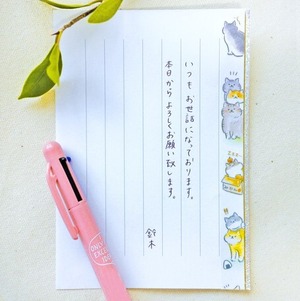 いつも お世話になっております。
本日から よろしくお願い致します。
鈴木